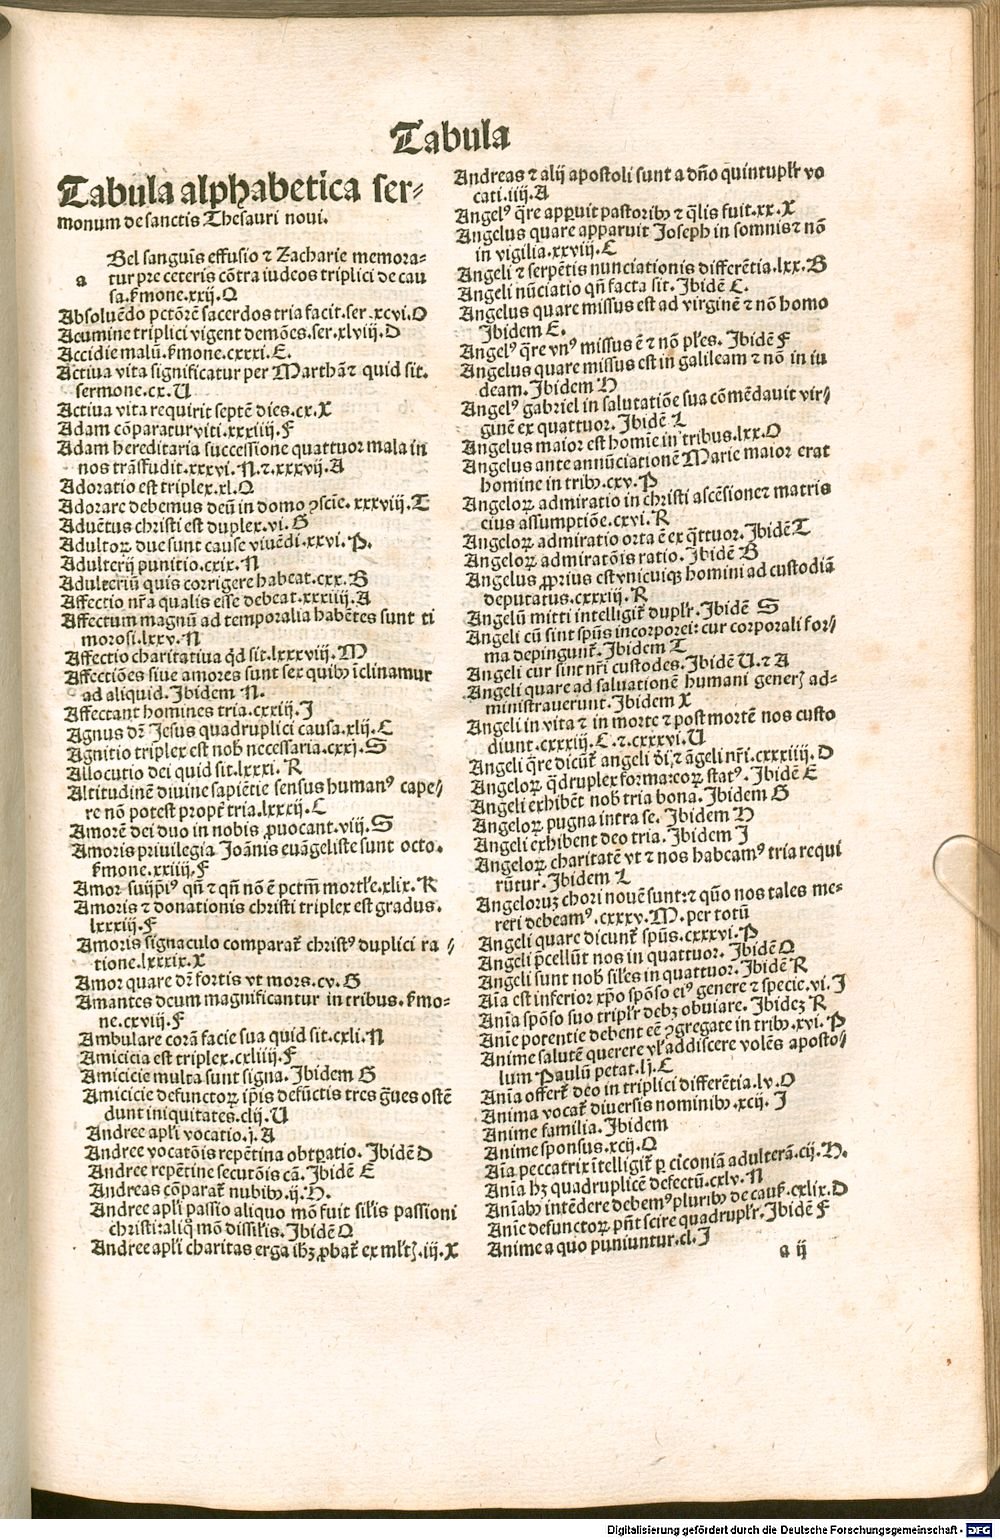 Tabula
Tabula alphabetica ser⸗
monum de sanctis Thesauri noui.
a Bel sanguis effusio ⁊ Zacharie memora⸗
tur pre ceteris cõtra iudeos triplici de cau
sa. sermone.xxij.Q
Absoluẽdo pctõrẽ sacerdos tria facit.ser.xcvi.O
Acumine triplici vigent demões.ser.xlviij.D
Accidie malũ.sermone.cxxxi.E.
Actiua vita significatur per Marthã ⁊ quid sit.
sermone.cx.U
Actiua vita requirit septẽ dies.cx.X
Adam cõparatur viti.xxxiiij.F
Adam hereditaria successione quattuor mala in
nos trãsfudit.xxxvi.N.⁊.xxxvij.A
Adoratio est triplex.xl.Q
Adorare debemus deũ in domo ꝯscie.xxxviij.T
Aduẽtus christi est duplex.vi.G
Adultoꝝ due sunt cause viuẽdi.xxvi.P.
Adulterij punitio.cxix.N
Adulteriũ quis corrigere habeat.cxx.B
Affectio nr̃a qualis esse debeat.xxxiiij.A
Affectum magnũ ad temporalia habẽtes sunt ti
morosi.lxxv.N
Affectio charitatiua qd̃ sit.lxxxviij.M
Affectiões siue amores sunt sex quibꝰ ĩclinamur
ad aliquid. Ibidem N.
Affectant homines tria.cxxiij.J
Agnus dr̃ Jesus quadruplici causa.xlij.C
Agnitio triplex est nob̃ necessaria.cxxj.S
Allocutio dei quid sit.lxxxi.R
Altitudinẽ diuine sapiẽtie sensus humanꝰ cape⸗
re nõ potest propt̃ tria.lxxcij.C
Amorẽ dei duo in nobis ꝓuocant.viij.S
Amoris priuilegia Joãnis euãgeliste sunt octo.
sermone.xxiiij.F
Amor suijpi̾ꝰ qñ ⁊ qñ nõ ẽ pctm̃ mortĺe.xlix.R
Amoris ⁊ donationis christi triplex est gradus.
lxxxiij.F
Amoris signaculo comparat̃ christꝰ duplici ra⸗
tione.lxxxix.X
Amor quare dr̃ fortis vt mors.cv.G
Amantes deum magnificantur in tribus. sermo⸗
ne.cxviij.F
Ambulare corã facie sua quid sit.cxli.N
Amicicia est triplex.cxliiij.F
Amicicie multa sunt signa. Ibidem G
Amicicie defunctoꝝ ip̃is defũctis tres g̃ues ostẽ
dunt iniquitates.clij.U
Andree apĺi vocatio.j.A
Andree vocatõis repẽtina obtp̃atio. Ibidẽ D
Andree repẽtine secutõis cã. Ibidẽ E
Andreas cõparat̃ nubibꝰ.ij.H.
Andree apĺi passio aliquo mõ fuit siĺis passioni
christi: aliq̃ mõ dissiĺis. Ibidẽ Q
Andree apĺi charitas erga ihꝫ ꝓbat̃ ex mĺtꝭ.iij.X
Andreas ⁊ alij apostoli sunt a dño quintupĺr vo
cati.iiij.A
Angelꝰ q̃re appuit pastoribꝰ ⁊ q̃lis fuit.xx.X
Angelus quare apparuit Joseph in somnis ⁊ nõ
in vigilia.xxviij.C
Angeli ⁊ serpẽtis nunciationis differẽtia.lxx.B
Angeli nũciatio qñ facta sit. Ibidẽ C.
Angelus quare missus est ad virginẽ ⁊ nõ homo
Ibidem E.
Angelꝰ q̃re vnꝰ missus ẽ ⁊ nõ pĺes. Ibidẽ F
Angelus quare missus est in galileam ⁊ nõ in iu
deam. Ibidem H
Angelꝰ gabriel in salutatiõe sua cõmẽdauit vir⸗
ginẽ ex quattuor. Ibidẽ L
Angelus maior est homie in tribus.lxx.O
Angelus ante annũciationẽ Marie maior erat
homine in tribꝰ.cxv.P
Angeloꝝ admiratio in christi ascẽsione ⁊ matris
eius assumptiõe.cxvi.R
Angeloꝝ admiratio orta ẽ ex q̃ttuor. Ibidẽ T
Angeloꝝ admiratõis ratio. Ibidẽ B
Angelus ꝓprius est vnicuiqꝫ homini ad custodiã
deputatus.cxxxiij.R
Angelũ mitti intelligit̃ dupĺr. Ibidẽ S
Angeli cũ sint spũs incorporei: cur corporali for⸗
ma depingunt̃. Ibidem T
Angeli cur sint nr̃i custodes. Ibidẽ U.⁊ A
Angeli quare ad saluationẽ humani generꝭ ad⸗
ministrauerunt. Ibidem X
Angeli in vita ⁊ in morte ⁊ post mortẽ nos custo
diunt.cxxxiij.C.⁊.cxxxvi.U
Angeli q̃re dicũt̃ angeli dĩ, ⁊ ãgeli nr̃i.cxxxiiij.D
Angeloꝝ q̃druplex forma: eoꝝ statꝰ. Ibidẽ E
Angeli exhibẽt nob̃ tria bona. Ibidem G
Angeloꝝ pugna intra se. Ibidem H
Angeli exhibent deo tria. Ibidem J
Angeloꝝ charitatẽ vt ⁊ nos habeamꝰ tria requi
rũtur. Ibidem L
Angeloruꝫ chori nouẽ sunt: ⁊ quõ nos tales me⸗
reri debeamꝰ.cxxxv.M.per totũ
Angeli quare dicunt̃ spũs.cxxxvi.P
Angeli p̃cellũt nos in quattuor. Ibidẽ Q
Angeli sunt nob̃ siĺes in quattuor. Ibidẽ R
Añia est inferior xp̃o spõso eiꝰ genere ⁊ specie.vi.J
Añia spõso suo tripĺr debꝫ obuiare. Ibidez R
Anĩe potentie debent eẽ ꝯgregate in tribꝰ.xvi.P
Anime salutẽ querere vĺ addiscere volẽs aposto⸗
lum Paulũ petat.lj.C
Añia offert̃ deo in triplici differẽtia.lv.O
Anima vocat̃ diuersis nominibꝰ.xcij.J
Anime familia. Ibidem
Anime sponsus.xcij.Q
Añia peccatrix ĩtelligit̃ ꝑ ciconiã adulterã.cij.H.
Añia hꝫ quadruplicẽ defectũ.cxlv.N
Anĩabꝰ intẽdere debemꝰ pluribꝰ de causis.cxlix.D
Anĩe defunctoꝝ pñt scire quadrupĺr. Ibidẽ F
Anime a quo puniuntur.cl.J
a ij
Digitalisierung gefördert durch die Deutsche Forschungsgemeinschaft - DFG